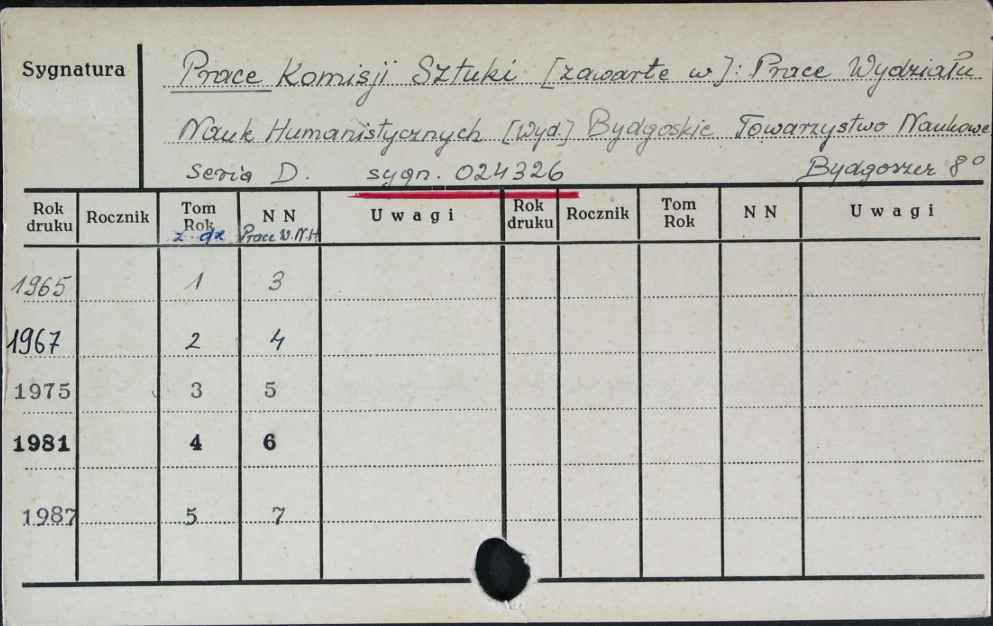 Sygnatura
Prace Komisji Sztuki [zawarte w]: Prace Wydziału
Nauk Humanistycznych [Wyd.] Bydgoskie Towarzystwo Naukowe
Seria D. sygn. 024326 Bydgoszcz 8°
Rok druku Rocznik Tom Rok N N Uwagi Rok druku Rocznik Tom Rok N N Uwagi
Prace W.N.H.
1965 1 3
1967 2 4
1975 3 5
1981 4 6
1987 5 7